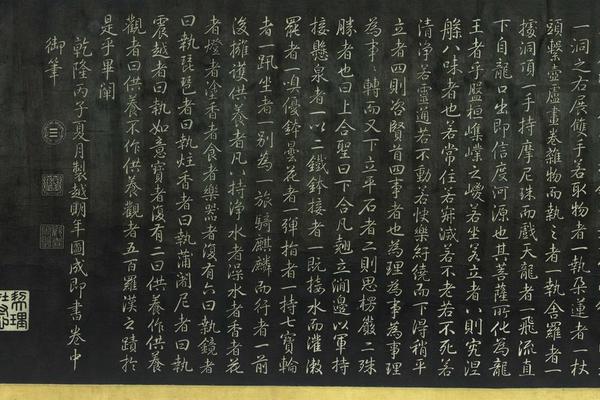 一洞之右展雙手若取物者一執朵蓮者一杖
頭繫壺盧畫卷雜物而執之者一執舍羅者一
據洞頂一手持摩尼珠而戲天龍者一飛流直
下自龍口出即信度河源也其菩薩所化為龍
王者手盤桓嶫之若坐若立者八則究涅
槃八味者也若常住若寂滅若不老若不死若
清淨若虛通若不動若快樂紆繞而下得稍平
立者四則咨賢首四事者也為理為事為事理
為事〻轉而又下立平石者二則思楞嚴二殊
勝者也曰上合聖曰下合凡翹立澗邊以軍持
接懸泉者一以二鐵鉢接者一既接水而漱
罷者一嗅優鉢曇花者一彈指者一持七寶輪
者一趺坐者一別為一旅騎麒麟而行者一前
後擁護供養者凡八持淨水者澡水者香者花
者燈者塗香者食者樂器者復有六曰執鏡者
曰執琵琶者曰執炷香者曰執蒲闍尼者曰執
震越者曰執如意寶者復有二曰供養作供養
觀者曰供養不作供養觀者五百羅漢之蹟於
是乎畢闡
乾隆丙子夏月製越明年圖成即書卷中
御筆